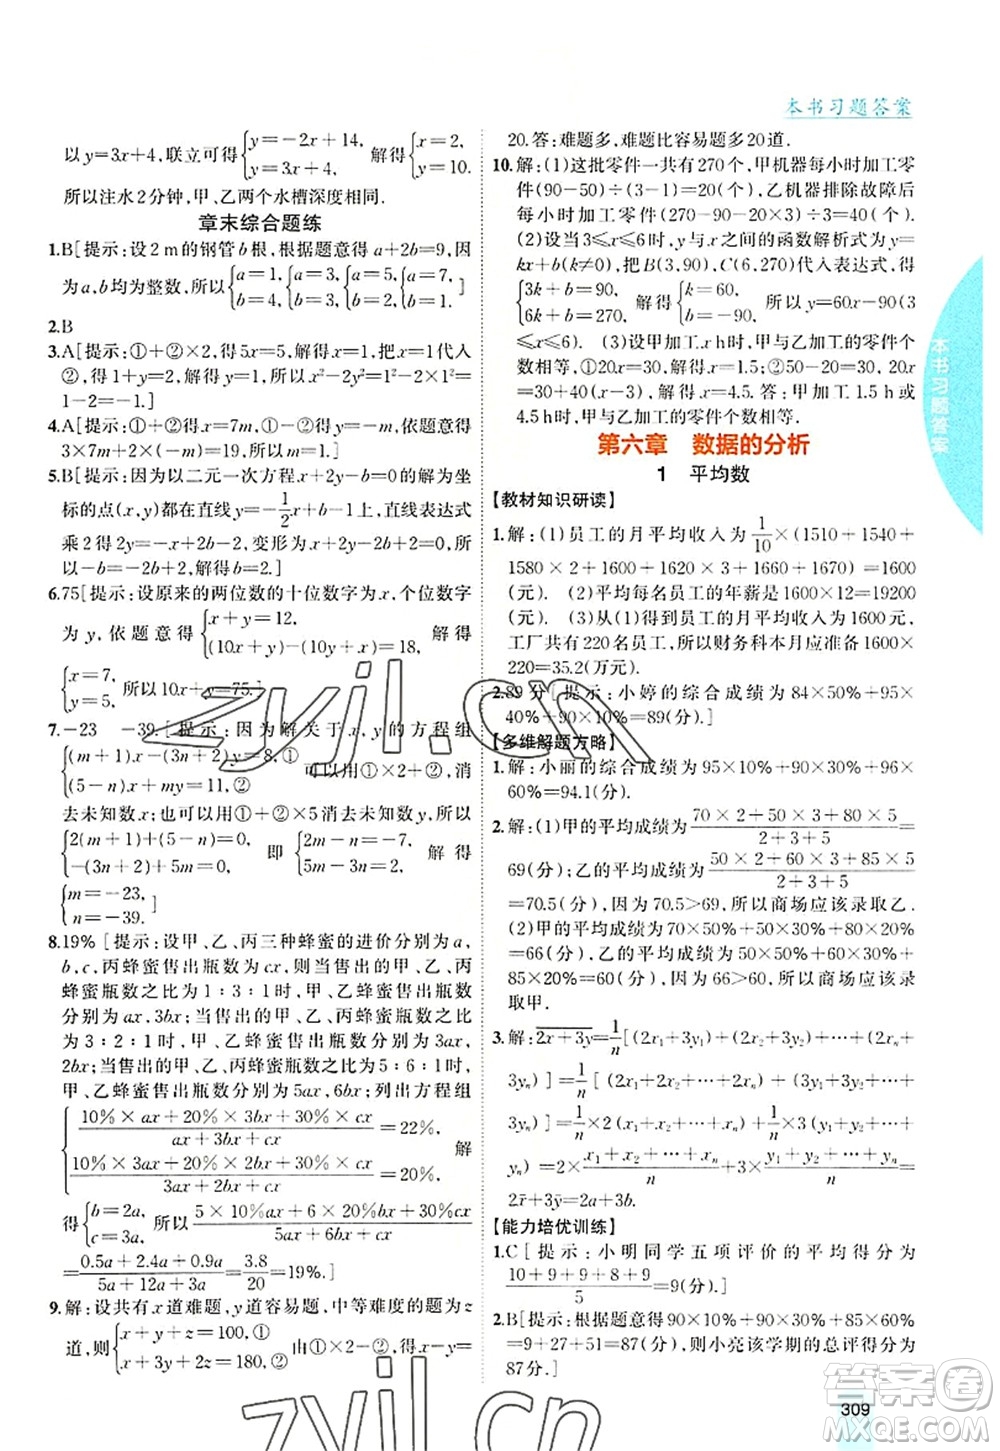 本书习题答案
以y=3x+4,联立可得{y=-2x+14, y=3x+4, 解得{x=2, y=10.
所以注水2分钟,甲、乙两个水槽深度相同.
章末综合题练
1.B[提示:设2 m的钢管b根,根据题意得a+2b=9,因
为a,b均为整数,所以{a=1, b=4, {a=3, b=3, {a=5, b=2, {a=7, b=1.]
2.B
3.A[提示:①+②×2得7x=7,解得x=1,把x=1代入
②,得1+y=2,解得y=1,所以x²-2xy+y²=1-2+
1=0.]
4.A[提示:①+②得x=7m,①-②得y=-m,依题意得
3×7m+2×(-m)=19,所以m=1.]
5.B[提示:因为以二元一次方程x+2y-b=0的解为坐
标的点(x,y)都在直线y=-1/2x+b-1上,直线表达式
乘2得2y=-x+2b-2,变形为x+2y-2b+2=0.
所以-b=-2b+2,解得b=2.]
6.75[提示:设原来的两位数的十位数字为x,个位数字
为y,依题意得{x+y=12, (10x+y)-(10y+x)=18, 解得
{x=7, y=5, 所以10x+y=75.]
7.-23　-39.[提示:因为解关于x,y的方程组
{(m+1)x-(3n+2)y=8,① (5-n)x+my=11② 可以用①×2+②,消
去未知数x;也可以用①+②×5消去未知数y,所以得
{2(m+1)+(5-n)=0, -(3n+2)+5m=0, 即{2m-n=-7, 5m-3n=2, 解得
{m=-23, n=-39.]
8.19%[提示:设甲、乙、丙三种蜂蜜的进价分别为a,
b,c,丙蜂蜜售出瓶数为cx,当售出的甲、乙、丙
蜂蜜瓶数之比为1∶3∶1时,甲、乙蜂蜜售出瓶数
分别为ax,3bx;当售出的甲、乙、丙蜂蜜瓶数之比为
3∶2∶1时,甲、乙蜂蜜售出瓶数分别为3ax,
2bx;当售出的甲、乙、丙蜂蜜瓶数之比为5∶6∶1时,
甲、乙蜂蜜售出瓶数分别为5ax,6bx;列出方程组
{(10%×ax+20%×3bx+30%×cx)/(ax+3bx+cx)=22%,
(10%×3ax+20%×2bx+30%×cx)/(3ax+2bx+cx)=20%, 解
得{b=2a, c=3a, 所以(5×10%ax+6×20%bx+30%cx)/(5ax+6bx+cx)
=(0.5a+2.4a+0.9a)/(5a+12a+3a)=3.8/20=19%.]
9.解:设共有x道难题,y道容易题,中等难度的题为z
道,则{x+y+z=100,① x+3y+2z=180,② 由①×2-②,得x-y=
20.答:难题多,难题比容易题多20道.
10.解:(1)这批零件一共有270个,甲机器每小时加工零
件(90-50)÷(3-1)=20(个),乙机器排除故障后
每小时加工零件(270-90-20×3)÷3=40(个).
(2)设当3≤x≤6时,y与x之间的函数解析式为y=
kx+b(k≠0),把B(3,90),C(6,270)代入表达式,得
{3k+b=90, 6k+b=270, 解得{k=60, b=-90, 所以y=60x-90(3
≤x≤6). (3)设甲加工x h时,甲与乙加工的零件个
数相等,①20x=30,解得x=1.5;②50-20=30,
20x=30+40(x-3),解得x=4.5.答:甲加工1.5 h或
4.5 h时,甲与乙加工的零件个数相等.
第六章　数据的分析
1　平均数
【教材知识研读】
1.解:(1)员工的月平均收入为1/10×(1510+1540+
1580×2+1600×3+1660+1670)=1600
(元). (2)平均每名员工的年薪是1600×12=
19200(元). (3)从(1)得到员工的月平均收入为1600元,
工厂共有220名员工,所以财务科本月应准备1600×
220=35.2(万元).
2.89分[提示:小婷的综合成绩为84×50%+95×
40%+90×10%=89(分).]
【多维解题方略】
1.解:小丽的综合成绩为95×10%+95×30%+94×
60%=94.1(分).
2.解:(1)甲的平均成绩为(70×2+50×3+80×5)/(2+3+5)=
69(分);乙的平均成绩为(50×2+60×3+85×5)/(2+3+5)
=70.5(分),因为70.5>69,所以商场应该录取乙.
(2)甲的平均成绩为
=66(分);乙的平均成绩为
=60(分),因为66>60,所以商场应该
录取甲.
3.解:2x+3y=1/n[(2x₁+3y₁)+(2x₂+3y₂)+…+(2xₙ+
3yₙ)]=1/n[(2x₁+2x₂+…+2xₙ)+(3y₁+3y₂+…+
3yₙ)]=
yₙ)=2×(x₁+x₂+…+xₙ)/n+3×(y₁+y₂+…+yₙ)/n=
2x̄+3ȳ=2a+3b.
【能力培优训练】
1.C[提示:小明同学五项评价的平均得分为
(10+9+9+8+9)/5=9(分).]
2.B[提示:根据题意得90×10%+90×30%+85×60%
=9+27+51=87(分),则小亮该学期的总评得分为
87分.]
本书习题答案
309
答案圈
zyjl.cn
zyjl.cn